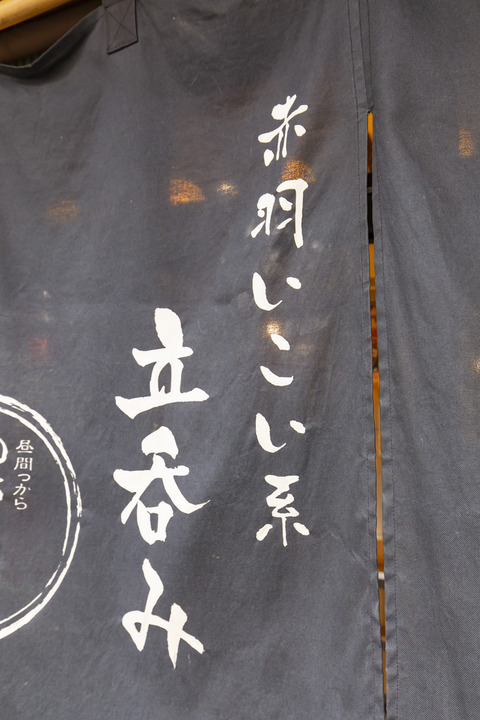 赤羽いこい系
立呑み
昼間っから